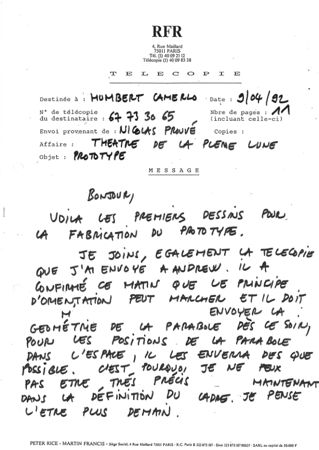 RFR
4, Rue Maillard
75011 PARIS
T E L E C O P I E
Destinée à : HUMBERT CAMERLO Date : 9/04/92
N° de télécopie du destinataire : 67 73 30 65 Nbre de pages : 11 (incluant celle-ci)
Envoi provenant de : NICOLAS PROUVÉ Copies :
Affaire : THEATRE DE LA PLEINE LUNE
Objet : PROTOTYPE
M E S S A G E
BONJOUR,
VOILA LES PREMIERS DESSINS POUR
LA FABRICATION DU PROTOTYPE.
JE JOINS, EGALEMENT LA TELECOPIE
QUE J'AI ENVOYE A ANDREW. IL A
CONFIRMÉ CE MATIN QUE LE PRINCIPE
D'ORIENTATION PEUT MARCHER ET IL DOIT
M ENVOYER LA
GEOMÉTRIE DE LA PARABOLE DÈS CE SOIR,
POUR LES POSITIONS DE LA PARABOLE
DANS L'ESPACE, IL LES ENVERRA DES QUE
POSSIBLE. C'EST POURQUOI JE NE PEUX
PAS ETRE TRÈS PRÉCIS MAINTENANT
DANS LA DÉFINITION DU CADRE. JE PENSE
L'ETRE PLUS DEMAIN.
PETER RICE - MARTIN FRANCIS - Siège Social, 4 Rue Maillard 75011 PARIS